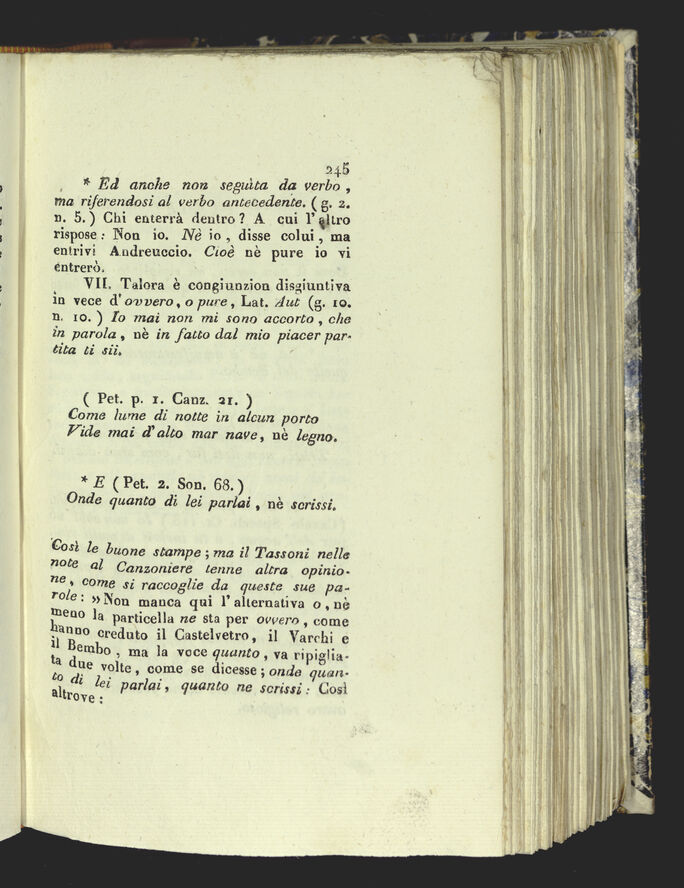 245
* Ed anche non seguìta da verbo,
ma riferendosi al verbo antecedente. (g. 2.
n. 5.) Chi enterrà dentro? A cui l'altro
rispose: Non io. Nè io, disse colui, ma
entrivi Andreuccio. Cioè nè pure io vi
entrerò.
VII. Talora è congiunzion disgiuntiva
in vece d'ovvero, o pure, Lat. Aut (g. 10.
n. 10.) Io mai non mi sono accorto, che
in parola, nè in fatto dal mio piacer par-
tita ti sii.
( Pet. p. 1. Canz. 21. )
Come lume di notte in alcun porto
Vide mai d'alto mar nave, nè legno.
* E (Pet. 2. Son. 68.)
Onde quanto di lei parlai, nè scrissi.
Così le buone stampe; ma il Tassoni nelle
note al Canzoniere tenne altra opinio-
ne, come si raccoglie da queste sue pa-
role: »Non manca qui l'alternativa o, nè
meno la particella ne sta per ovvero, come
hanno creduto il Castelvetro, il Varchi e
il Bembo, ma la voce quanto, va ripiglia-
ta due volte, come se dicesse; onde quan-
to di lei parlai, quanto ne scrissi: Così
altrove: